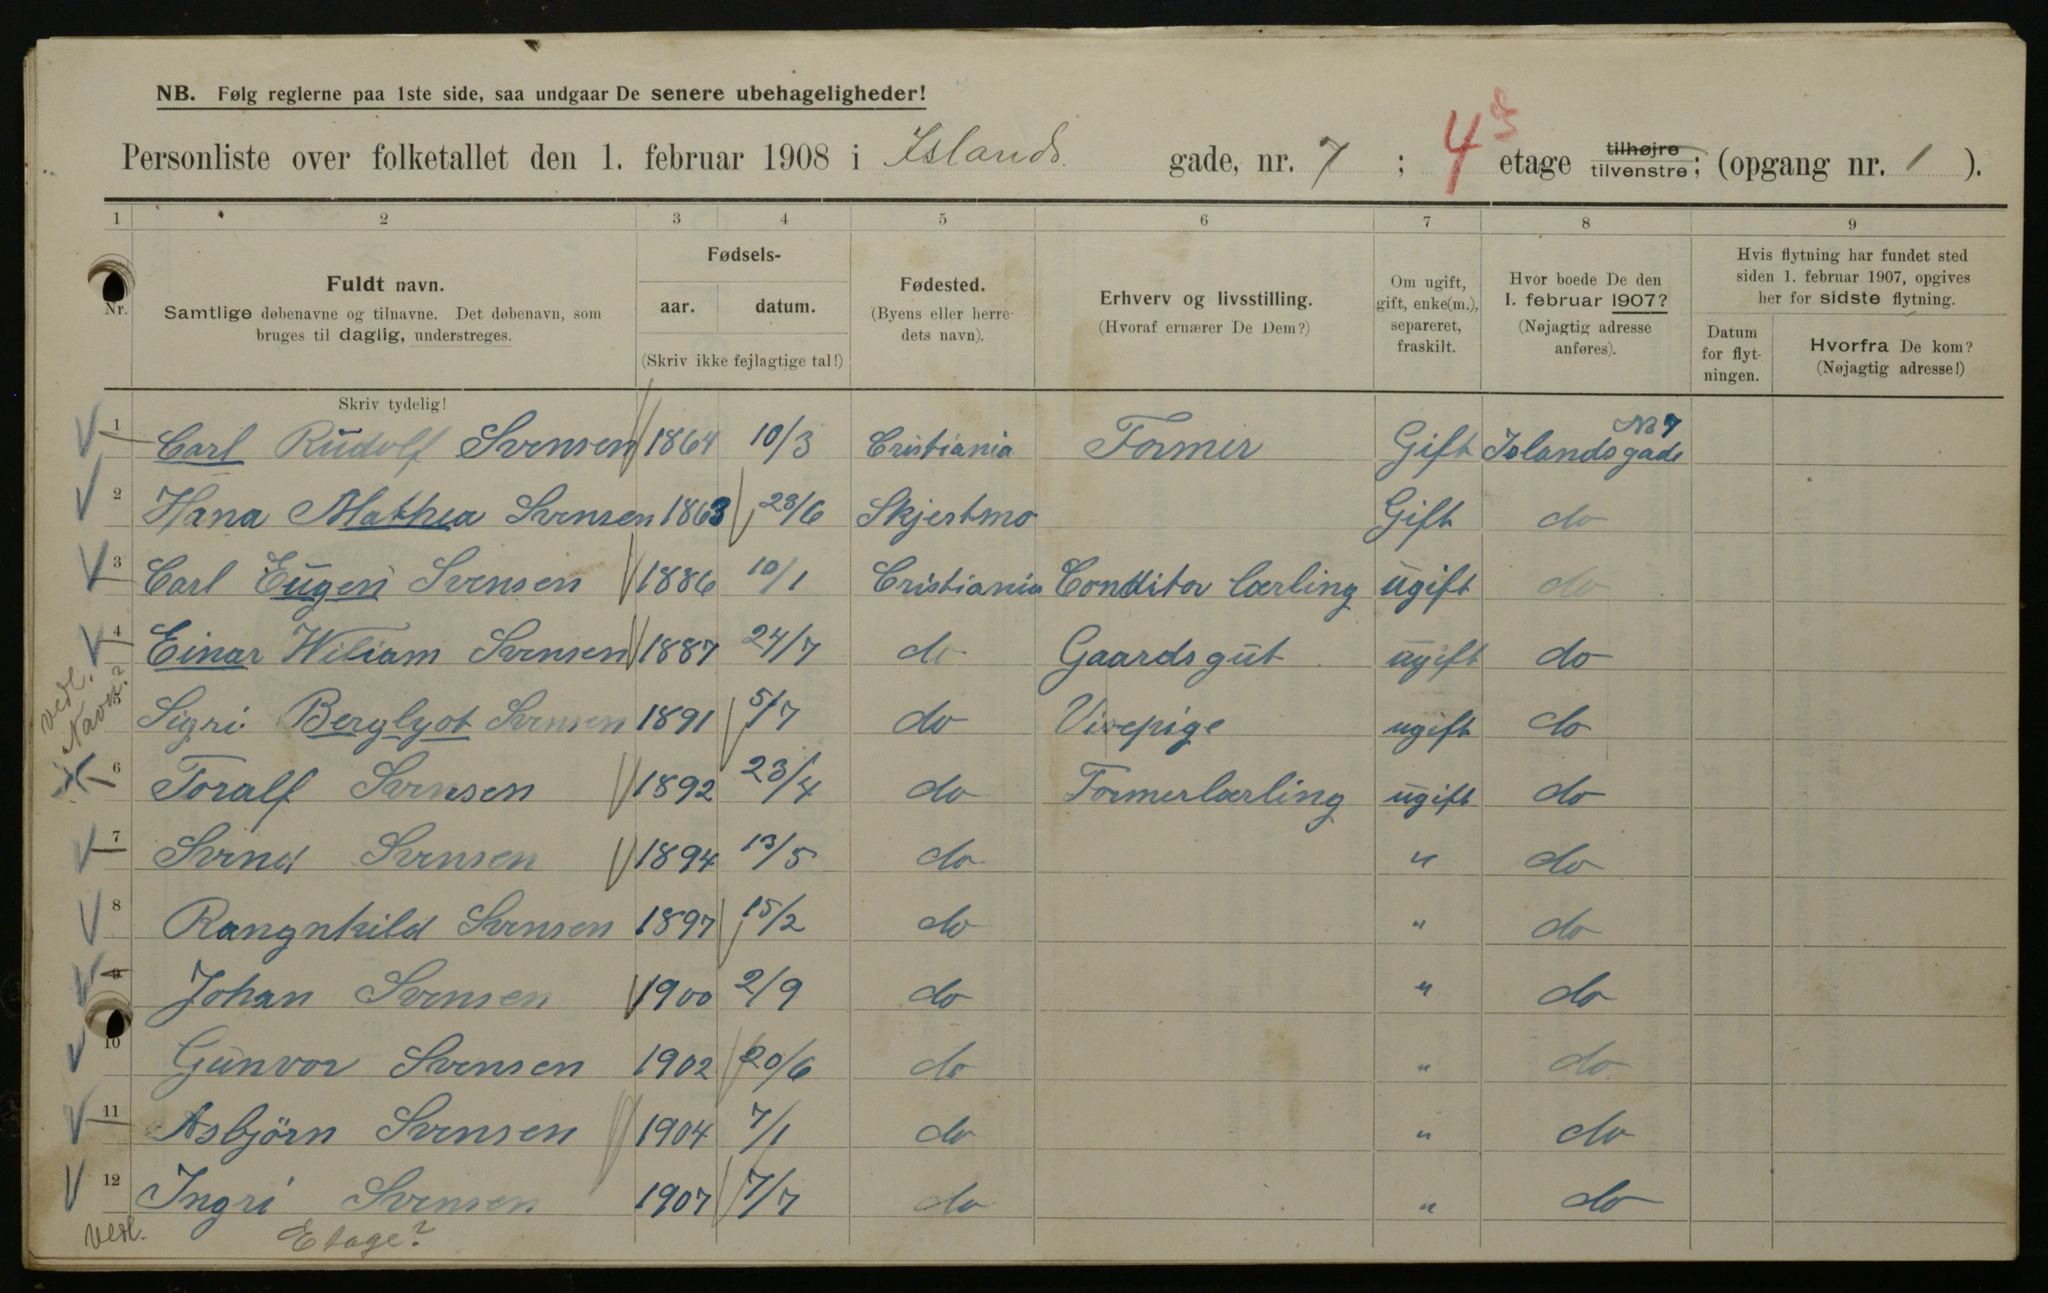 NB. Følg reglerne paa 1ste side, saa undgaar De senere ubehageligheder!
Personliste over folketallet den 1. februar 1908 i Islands gade, nr. 7 ; 4 etage tilhøjre tilvenstre; (opgang nr. 1 ).
1 2 3 4 5 6 7 8 9
Nr.
Fuldt navn.
Samtlige døbenavne og tilnavne. Det døbenavn, som
bruges til daglig, understreges.
Skriv tydelig!
Fødsels-
aar. datum.
(Skriv ikke fejlagtige tal!)
Fødested.
(Byens eller herre-
dets navn).
Erhverv og livsstilling.
(Hvoraf ernærer De Dem?)
Om ugift,
gift, enke(m.),
separeret,
fraskilt.
Hvor boede De den
1. februar 1907?
(Nøjagtig adresse
anføres).
Hvis flytning har fundet sted
siden 1. februar 1907, opgives
her for sidste flytning.
Datum
for flyt-
ningen.
Hvorfra De kom?
(Nøjagtig adresse!)
1 Carl Rudolf Svensen 1864 10/3 Cristiania Former Gift Islandsgade № 7
2 Hana Mathea Svensen 1863 23/6 Skjertmo Gift do
3 Carl Eugen Svensen 1886 10/1 Cristiania Conditor lærling ugift do
4 Einar Wiliam Svensen 1887 24/7 do Gaardsgut ugift do
vedl. Navn?
5 Sigri Berglyot Svensen 1891 5/7 do Visepige ugift do
6 Toralf Svensen 1892 23/4 do Formerlærling ugift do
7 Svend Svensen 1894 13/5 do " do
8 Rangnhild Svensen 1897 15/2 do " do
9 Johan Svensen 1900 2/9 do " do
10 Gunvor Svensen 1902 20/6 do " do
11 Asbjörn Svensen 1904 7/1 do " do
12 Ingri Svensen 1907 7/7 do " do
vedl. Etage?